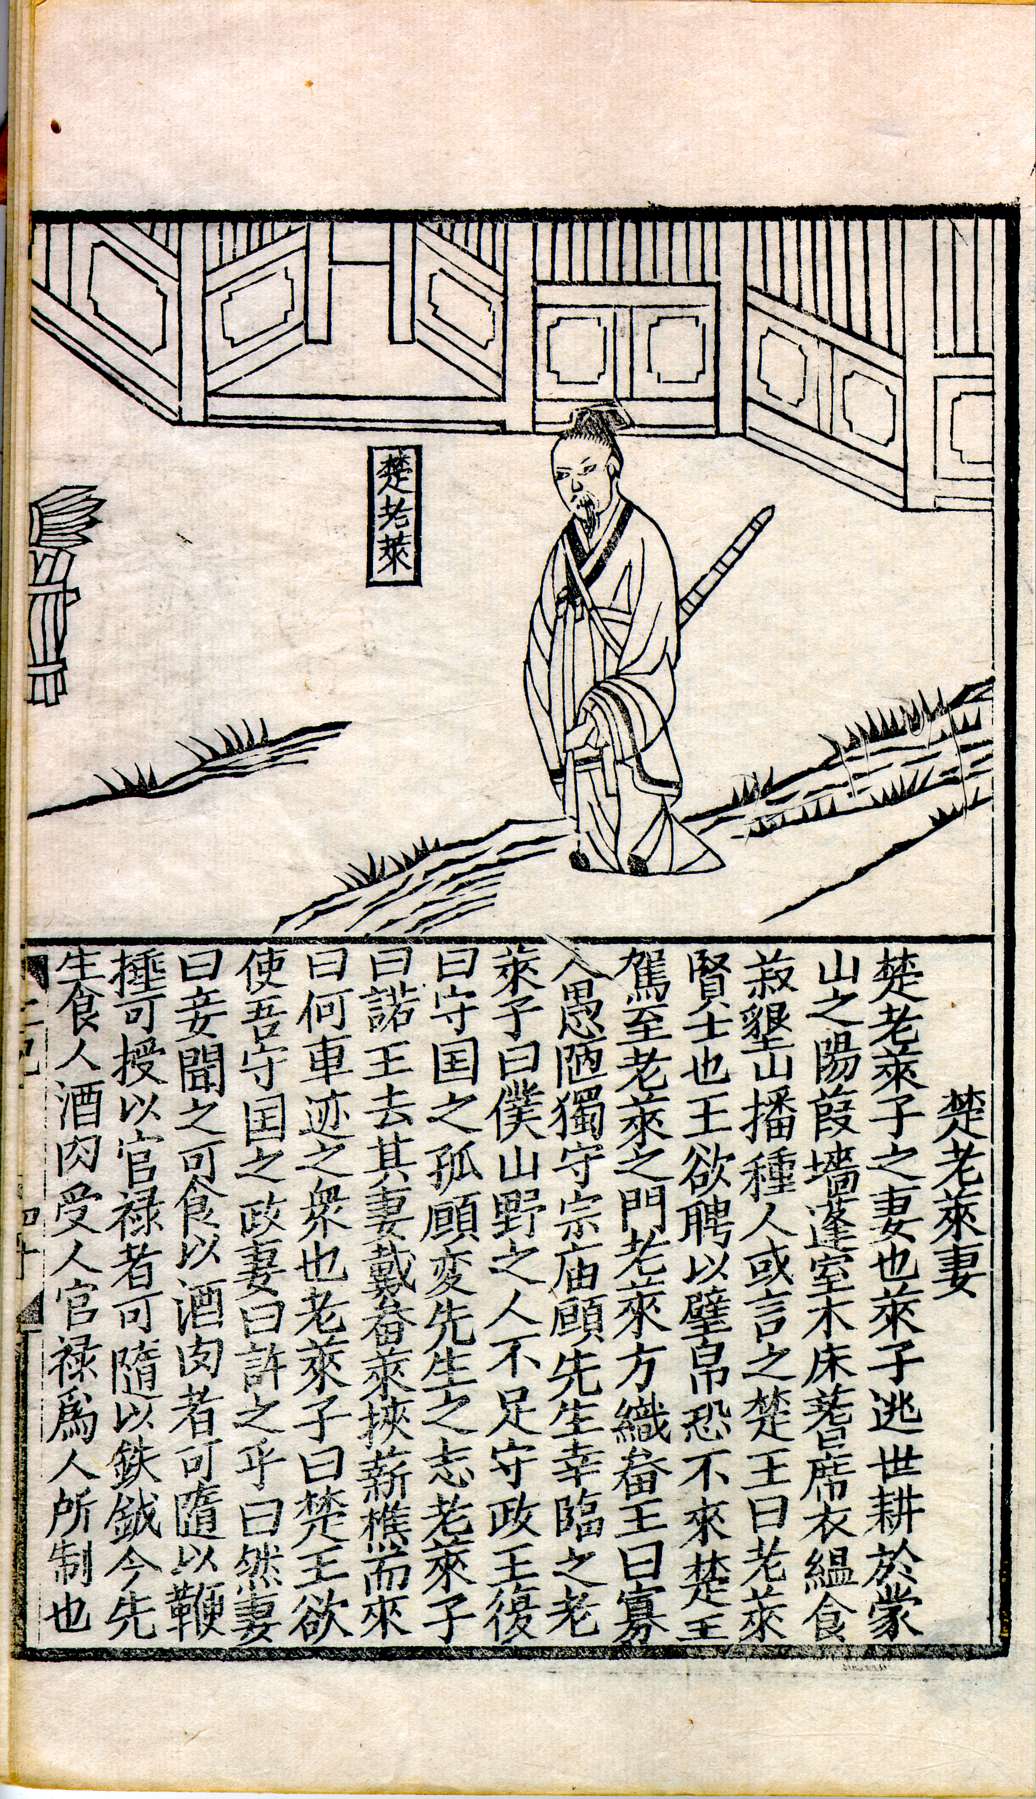 楚老萊
楚老萊妻
楚老萊子之妻也萊子逃世耕於蒙
山之陽葭墻蓬室木床蓍席衣緼食
菽墾山播種人或言之楚王曰老萊
賢士也王欲聘以璧帛恐不來楚王
駕至老萊之門老萊方織畚王曰寡
人愚陋獨守宗庙願先生幸臨之老
萊子曰僕山野之人不足守政王復
曰守国之孤願変先生之志老萊子
曰諾王去其妻戴畚萊挾薪樵而來
曰何車迹之衆也老萊子曰楚王欲
使吾守国之政妻曰許之乎曰然妻
曰妾聞之可食以酒肉者可隨以鞭
捶可授以官禄者可隨以鈇鉞今先
生食人酒肉受人官禄爲人所制也